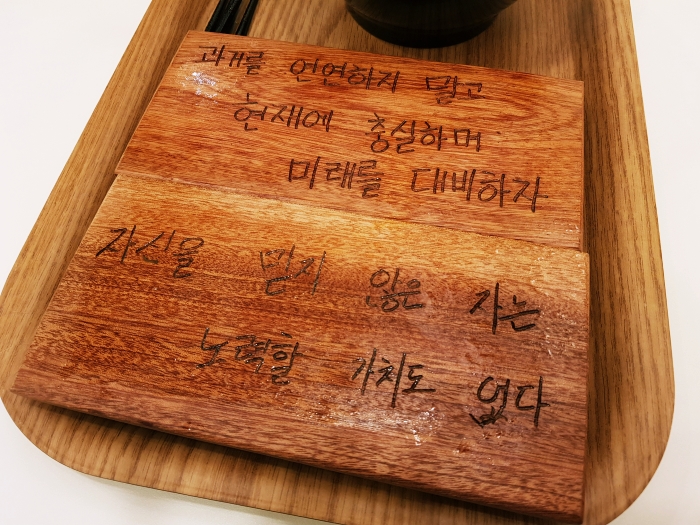 과거를 언연하지 말고
현재에 충실하며
미래를 대비하자
자신을 믿지 않은 자는
노력할 가치도 없다